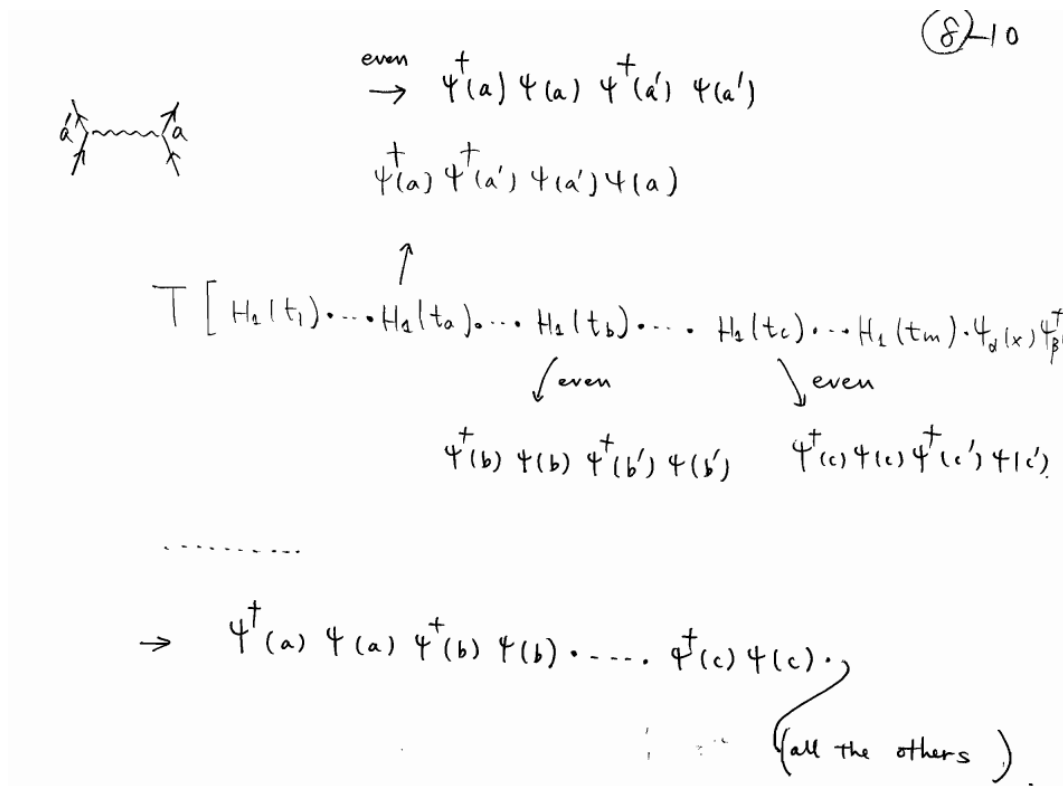 ⑧-10
even
→ ψ†(a) ψ(a) ψ†(a') ψ(a')
a' a
ψ†(a) ψ†(a') ψ(a') ψ(a)
↑
T [ H₁(t₁)·...·H₁(ta)·... H₁(tb)·... H₁(tc)·...H₁(tm)·ψα(x)ψβ†
↙ even ↘ even
ψ†(b) ψ(b) ψ†(b') ψ(b') ψ†(c) ψ(c) ψ†(c') ψ(c')
..........
→ ψ†(a) ψ(a) ψ†(b) ψ(b)·..... ψ†(c) ψ(c)·
(all the others).